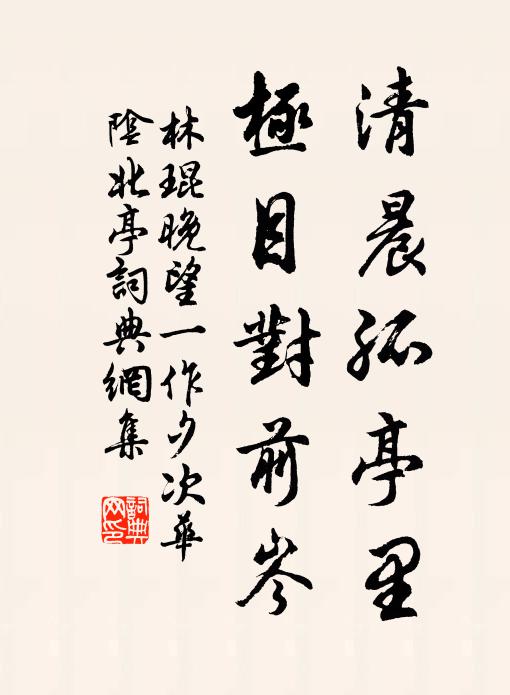 清晨孤亭里
極目對前岑
林琨晚望一作夕次華
陰北亭詞典網集
詞典網印